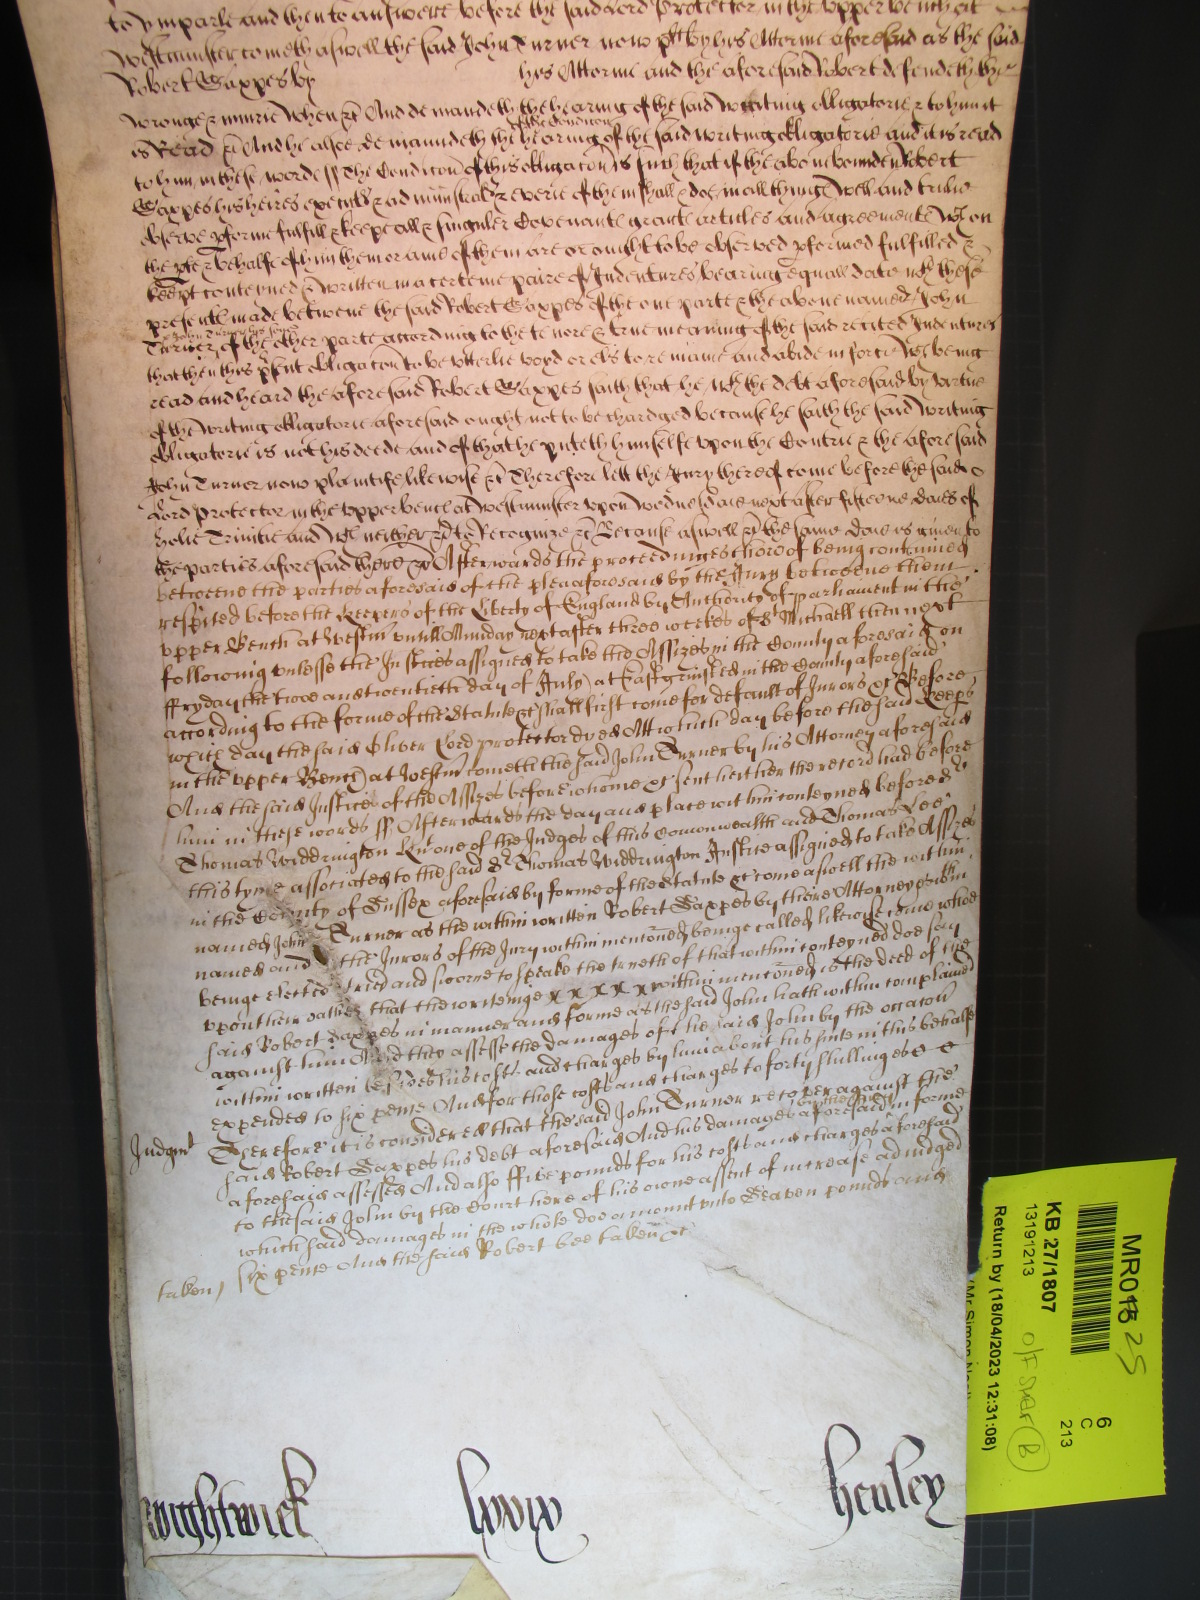 to ymparle and then to answere before the said Lord Protector in the upper bench at
Westminster cometh aswell the said John Turner now pltt by his Attorne aforesaid as the said
Robert Saxpes by his Attorne and the aforesaid Robert defendeth the
wronge & iniurie when &c And demandeth the hearing of the said writing obligatorie & to him it
is Read &c And he alsoe demaundeth the hearing of the said writing obligatorie and it is read
of the Condicion
to him in these words ss The Condicon of this obligacon is such that if the above bounden Robert
Saxpes his heires executrs & administratrs & everie of them shall & doe in all things well and trulie
observe pforme fulfill & keepe all & singuler Covenants grants articles and agreements wch on
the pte & behalfe of him them or anie of them are or ought to be observed pformed fulfilled &
keept conteyned & written in a certeine paire of Indentures bearing equall date wth these
presents made betweene the said Robert Saxpes of the one parte & the above named John
Turner of the other parte according to the tenore & true meaning of the said recited Indentures
that then this psent obligacon to be utterlie voyd or els to remaine and abide in force Wch being
read and heard the aforesaid Robert Saxpes saith that he wth the debt aforesaid by vertue
of the writing obligatorie aforesaid ought not to be chardged because he saith the said writing
obligatorie is not his deede and of that he putteth himselfe upon the Contrie & the aforesaid
John Turner now plaintife likewise &c Therefore lett the Jury thereof come before the said
Lord protector in the upper bench at westminster upon wednesdaie next after fifteene daies of
holie Trinitie and wch neither &c to Recognize &c Because aswell &c the same daie is given to
the parties aforesaid there &c Afterwards the proceedinges thereof being continued
betweene the parties aforesaid of the plea aforesaid by the Jury betweene them
respited before the Keepers of the Liberty of England by Authority of parliament in the
upper Bench at Westm untill Munday next after three weekes of St Michaell then next
following unlesse the Justices assigned to take the Assizes in the County aforesaid on
ffryday the two and twentieth day of July at East grinsted in the County aforesaid
according to the forme of the Statute &c shall first come for default of Jurors &c Before
wich day the said Oliver Lord protector dyed Att which day before the said Keeps
in the upper Bench at Westm cometh the said John Turner by his Attorney aforesaid
And the said Justices of the Assizes before whome &c sent hether the record had before
him in these words ss Afterwards the day and place within conteyned before Sr
Thomas Widdrington Knt one of the Judges of this Comonwealth and Thomas Lee
this tyme associated to the said Sr Thomas Widdrington Justice assigned to take Assizes
in the County of Sussex aforesaid by forme of the statute &c come aswell the within
named John Turner as the within written Robert Saxpes by their Attorneys within
named and the Jurors of the Jury within mentoned beinge called likewise come whoe
beinge elected tried and sworne to speake the trueth of that within conteyned doe say
upon their oathes that the writeinge x x x x x within mentoned is the deed of the
said Robert Saxpes in manner and forme as the said John hath within complained
against him And they assesse the damages of the said John by the occacon
within written besides his costs and charges by him about his suite in this behalfe
expended to six pence And for those costs and charges to forty shillinges &c
Judgmt Therefore it is considered that the said John Turner recover against the
said Robert Saxpes his debt aforesaid And his damages aforesaid in forme
by the Jury
aforesaid assessed And also ffive pounds for his costs and charges aforesaid
to the said John by the Court here of his owne assent of increase adiudged
which said damages in the whole doe amount unto Seaven pounds and
taken / six pence And the said Robert bee taken &c
Wightwick lxxix henley
MR015 25
6
C
213
KB 27/1807
13191213
O/F SMEAF B
Return by (18/04/2023 12:31:08)